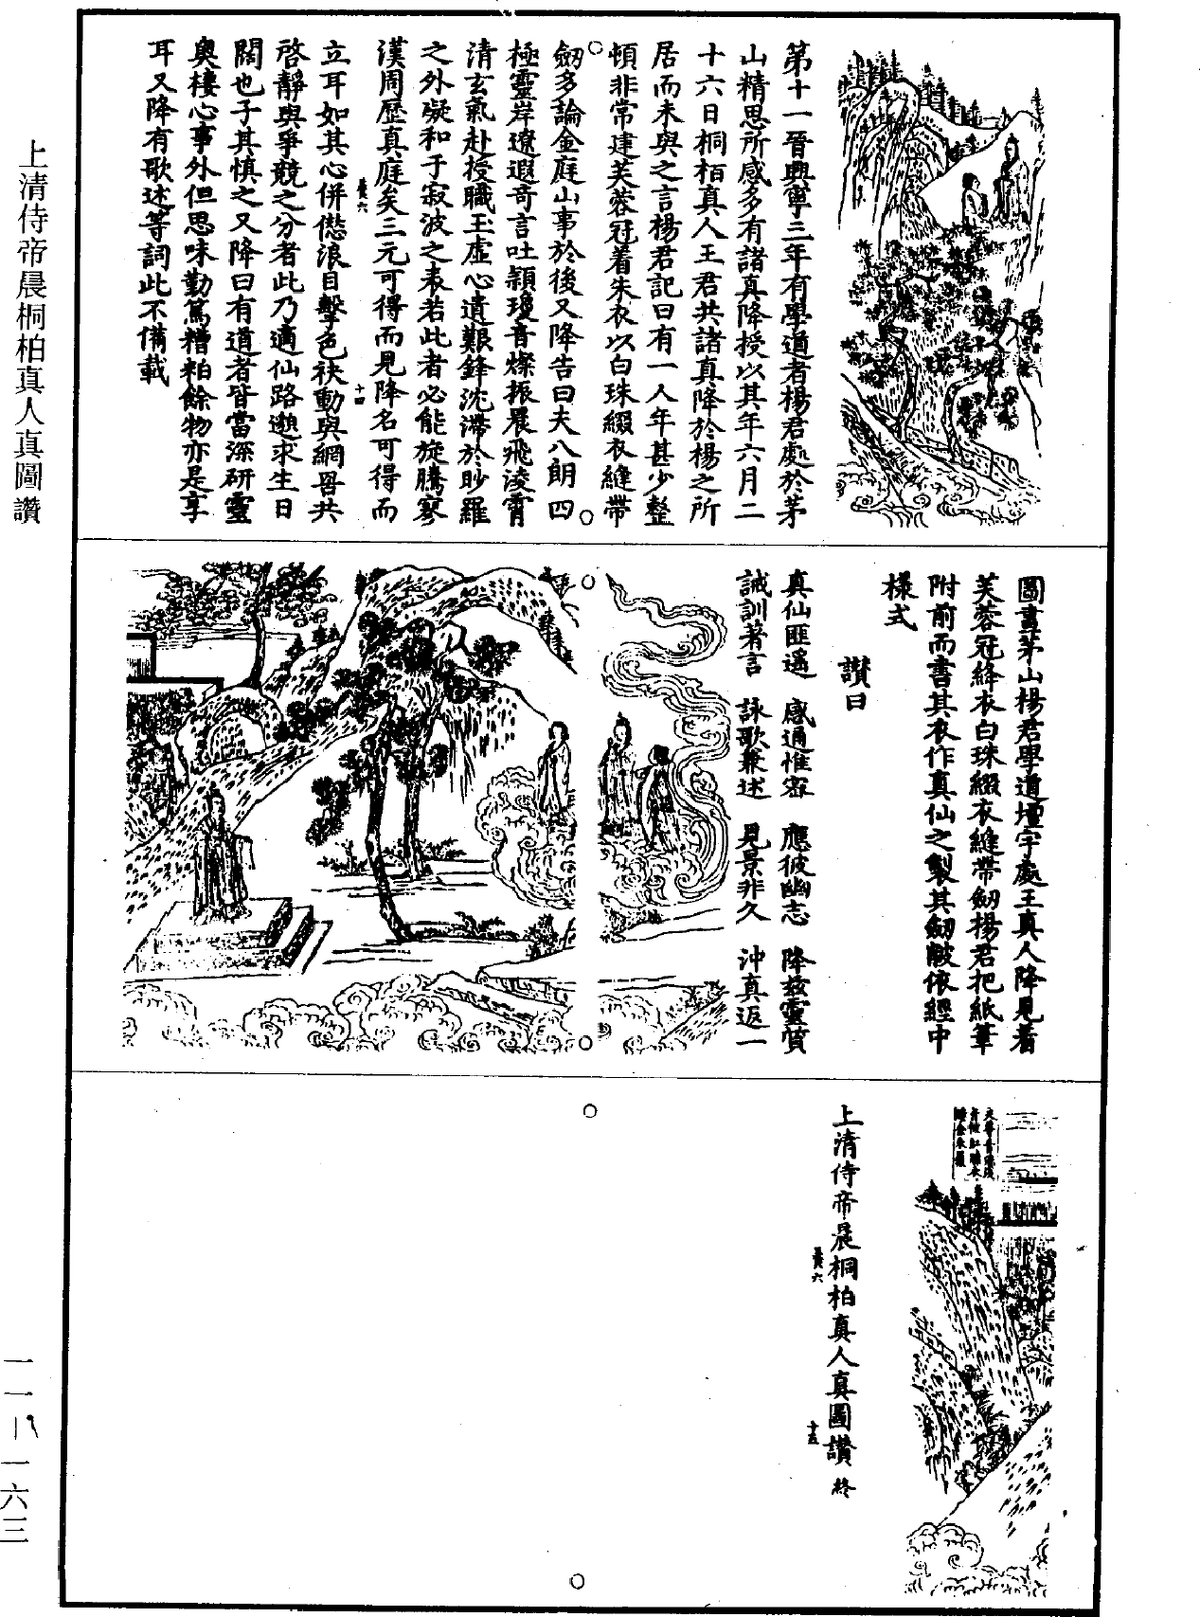 上清侍帝晨桐柏真人真圖讚
第十一晉興寧三年有學道者楊君處於茅
山精思所感多有諸真降授以其年六月二
十六日桐栢真人王君共諸真降於楊之所
居而未與之言楊君記曰有一人年甚少整
頓非常建芙蓉冠着朱衣以白珠綴衣縫帶
劒多論金庭山事於後又降告曰夫八朗四
極靈岸遼遐奇言吐穎瓊音燦振晨飛淩霄
清玄氣赴授職王虛心遺艱鋒沈滯於眇羅
之外凝和于寂波之表若此者必能旋騰寥
漢周歷真庭矣三元可得而見降名可得而
立耳如其心併愆浪目擊色袂動與網罟共
啓靜與爭競之分者此乃適仙路邈求生日
闊也子其慎之又降曰有道者皆當深研靈
奧棲心事外但思味勤篤糟粕餘物亦是享
耳又降有歌述等詞此不備載
圖畫茅山楊君學道壇宇處王真人降見着
芙蓉冠絳衣白珠綴衣縫帶劒楊君把紙筆
附前而書其衣作真仙之製其劒敝依經中
樣式
讃曰
真仙匪遥 感通惟密 應彼幽志 降兹靈質
誡訓著言 詠歌兼述 見景非久 沖真返一
上清侍帝晨桐柏真人真圖讚 終
十四
十五
一一－一六三